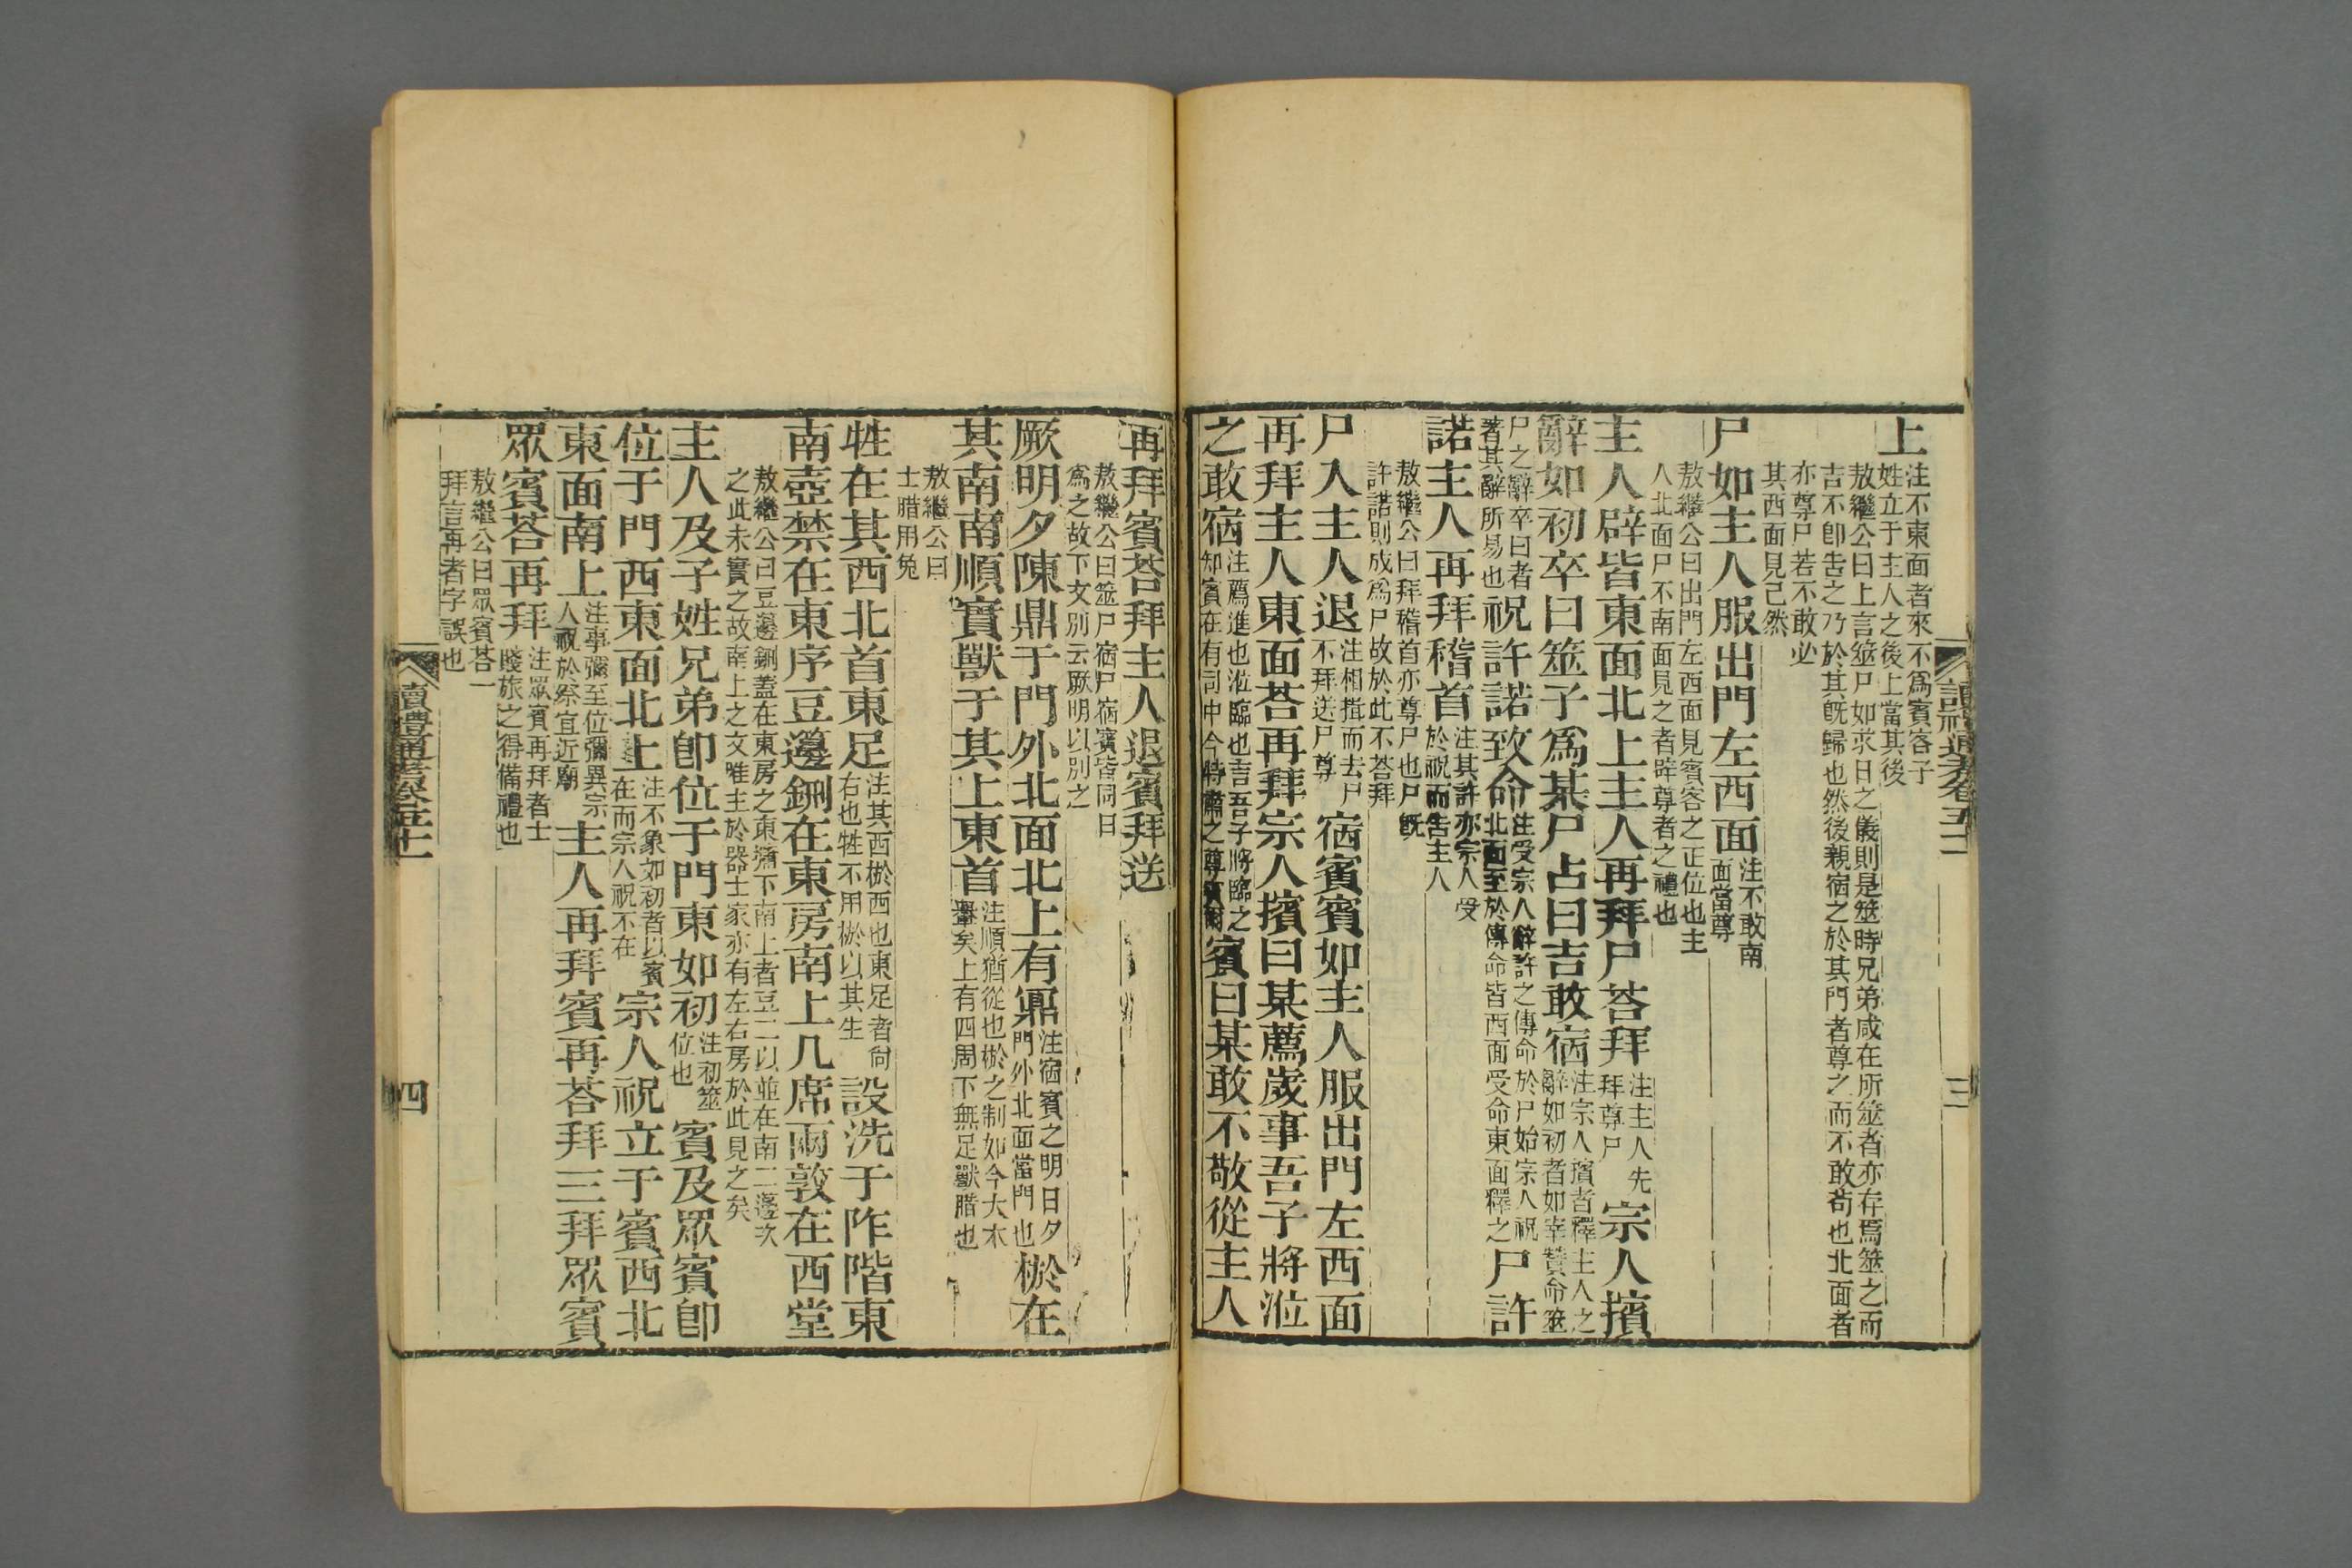 上注不東面者來不爲賓客子姓立于主人之後上當其後
敖繼公曰上言筮尸如求日之儀則是筮時兄弟咸在所筮者亦存焉筮之而吉不卽告之乃於其旣歸也然後親宿之於其門者尊之而不敢苟也北面者
亦尊尸若不敢必其西面見己然
尸如主人服出門左西面注不敢南面當尊
敖繼公曰出門左西面見賓客之正位也主人北面尸不南面見之者辟尊者之禮也
主人辟皆東面北上主人再拜尸荅拜注主人先拜尊尸宗人擯
辭如初卒曰筮子爲某尸占曰吉敢宿注宗人擯者釋主人之辭如初者如宰贊命筮
尸之辭卒曰者著其辭所易也祝許諾致命注受宗人辭許之傳命於尸始宗人祝北面至於傳命皆西面受命東面釋之尸許
諾主人再拜稽首注其許亦宗人受於祝而告主人
敖繼公曰拜稽首亦尊尸也尸旣許諾則成爲尸故於此不荅拜
尸入主人退注相揖而去尸不拜送尸尊宿賓賓如主人服出門左西面
再拜主人東面荅再拜宗人擯曰某薦歲事吾子將涖
之敢宿注薦進也涖臨也言吾子將臨之知賓在有司中今特肅之尊賓耳賓曰某敢不敬從主人
再拜賓荅拜主人退賓拜送
敖繼公曰筮尸宿尸宿賓皆同日爲之故下文別云厥明以別之
厥明夕陳鼎于門外北面北上有鼏注宿賓之明日夕門外北面當門也棜在
其南南順實獸于其上東首注順猶從也棜之制如今大木轝矣上有四周下無足獸腊也
敖繼公曰士腊用兔
牲在其西北首東足注其西棜西也東足者尙右也牲不用棜以其生設洗于阼階東
南壺禁在東序豆籩鉶在東房南上几席兩敦在西堂
敖繼公曰豆籩鉶蓋在東房之東墉下南上者豆二以並在南二籩次之此未實之故南上之文唯主於器士家亦有左右房於此見之矣
主人及子姓兄弟卽位于門東如初注初筮位也賓及眾賓卽
位于門西東面北上注不象如初者以賓在而宗人祝不在宗人祝立于賓西北
東面南上注事彌至位彌異宗人祝於祭宜近廟主人再拜賓再荅拜三拜眾賓
眾賓荅再拜注眾賓再拜者士賤旅之得備禮也
敖繼公曰眾賓荅一拜言再者字誤也
讀禮通考卷五十一
三
讀禮通考卷五十一
四